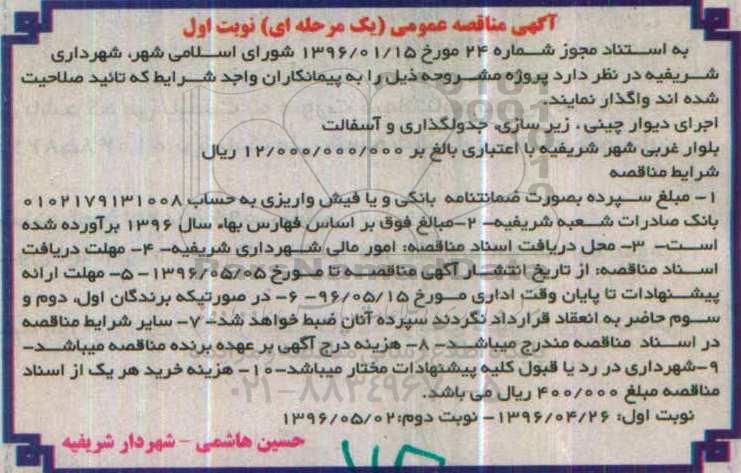 آگهی مناقصه عمومی (یک مرحله ای) نوبت اول
به استناد مجوز شماره ۲۴ مورخ ۱۳۹۶/۰۱/۱۵ شورای اسلامی شهر، شهرداری
شریفیه در نظر دارد پروژه مشروحه ذیل را به پیمانکاران واجد شرایط که تائید صلاحیت
شده اند واگذار نمایند.
اجرای دیوار چینی ، زیر سازی، جدولگذاری و آسفالت
بلوار غربی شهر شریفیه با اعتباری بالغ بر ۱۲/۰۰۰/۰۰۰/۰۰۰ ریال
شرایط مناقصه
۱- مبلغ سپرده بصورت ضمانتنامه بانکی و یا فیش واریزی به حساب ۰۱۰۲۱۷۹۱۳۱۰۰۸
بانک صادرات شعبه شریفیه- ۲-مبالغ فوق بر اساس فهارس بهاء سال ۱۳۹۶ برآورده شده
است- ۳- محل دریافت اسناد مناقصه: امور مالی شهرداری شریفیه- ۴- مهلت دریافت
اسناد مناقصه: از تاریخ انتشار آگهی مناقصه تا مورخ ۱۳۹۶/۰۵/۰۵- ۵- مهلت ارائه
پیشنهادات تا پایان وقت اداری مورخ ۹۶/۰۵/۱۵- ۶- در صورتیکه برندگان اول، دوم و
سوم حاضر به انعقاد قرارداد نگردند سپرده آنان ضبط خواهد شد- ۷- سایر شرایط مناقصه
در اسناد مناقصه مندرج میباشد- ۸- هزینه درج آگهی بر عهده برنده مناقصه میباشد-
۹-شهرداری در رد یا قبول کلیه پیشنهادات مختار میباشد-۱۰- هزینه خرید هر یک از اسناد
مناقصه مبلغ ۴۰۰/۰۰۰ ریال می باشد.
نوبت اول: ۱۳۹۶/۰۴/۲۶- نوبت دوم:۱۳۹۶/۰۵/۰۲
حسین هاشمی - شهردار شریفیه